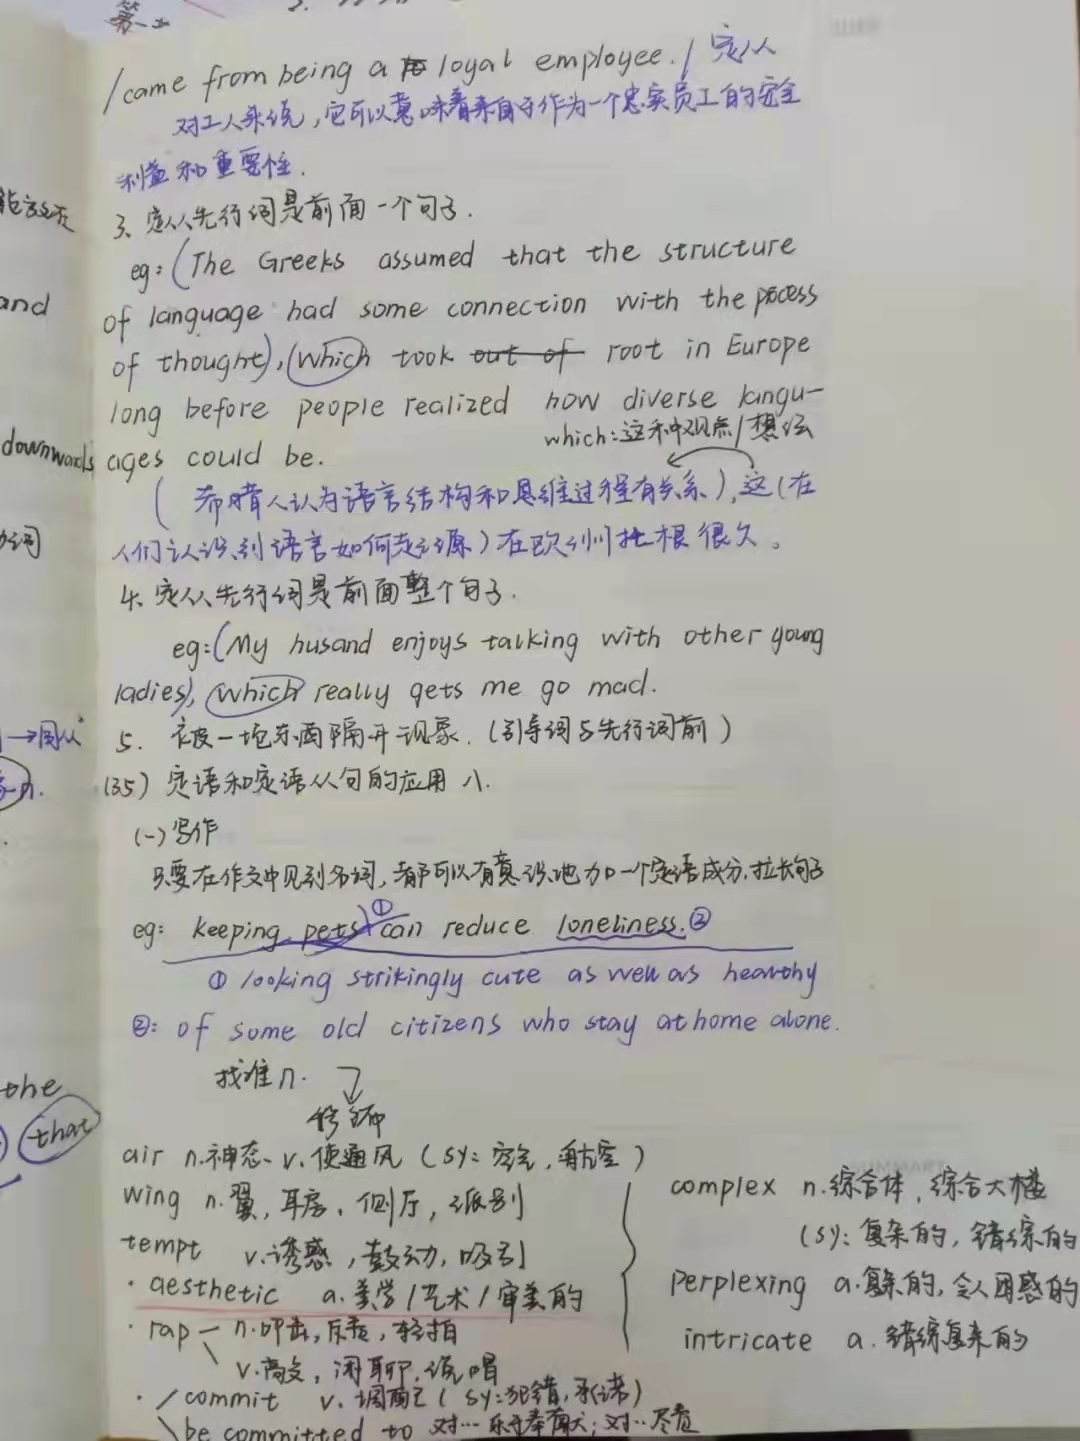 第一
/came from being a loyal employee./ 定从
对工人来说，它可以意味着来自于作为一个忠实员工的安全
利益和重要性.
3、定从先行词是前面一个句子.
eg:(The Greeks assumed that the structure
and
of language had some connection with the process
of thought),(which took out of root in Europe
long before people realized how diverse langu-
which:这种观点/想法
downwards
ages could be.
(希腊人认为语言结构和思维过程有关系),这(在
动词
人们认识到语言如何起源)在欧洲扎根很久。
4、定从先行词是前面整个句子.
eg:(My husand enjoys talking with other young
ladies),(which really gets me go mad.
→同从
5. 被一坨东西隔开现象.(引导词与先行词前)
n.
(35) 定语和定语从句的应用 八.
(一)写作
只要在作文中见到名词,都可以有意识地加一个定语成分,拉长句子
eg: keeping pets ① can reduce loneliness.②
① looking strikingly cute as well as healthy
②: of some old citizens who stay at home alone.
the
找准n.
that
修饰
air n.神态、v.使通风(sy:空气,航空)
wing n.翼,耳房、侧厅,派别
tempt v.诱惑,鼓动,吸引
· aesthetic a.美学/艺术/审美的
· rap — n.叩击,斥责,轻拍
v.高交,闲聊,说唱
· commit v.调配(sy:犯错,承诺)
be committed to 对…乐于奉献;对…尽责
SUMMARY
complex n.综合体,综合大楼
(sy:复杂的,错综的
perplexing a.复杂的,令人困惑的
intricate a.错综复杂的